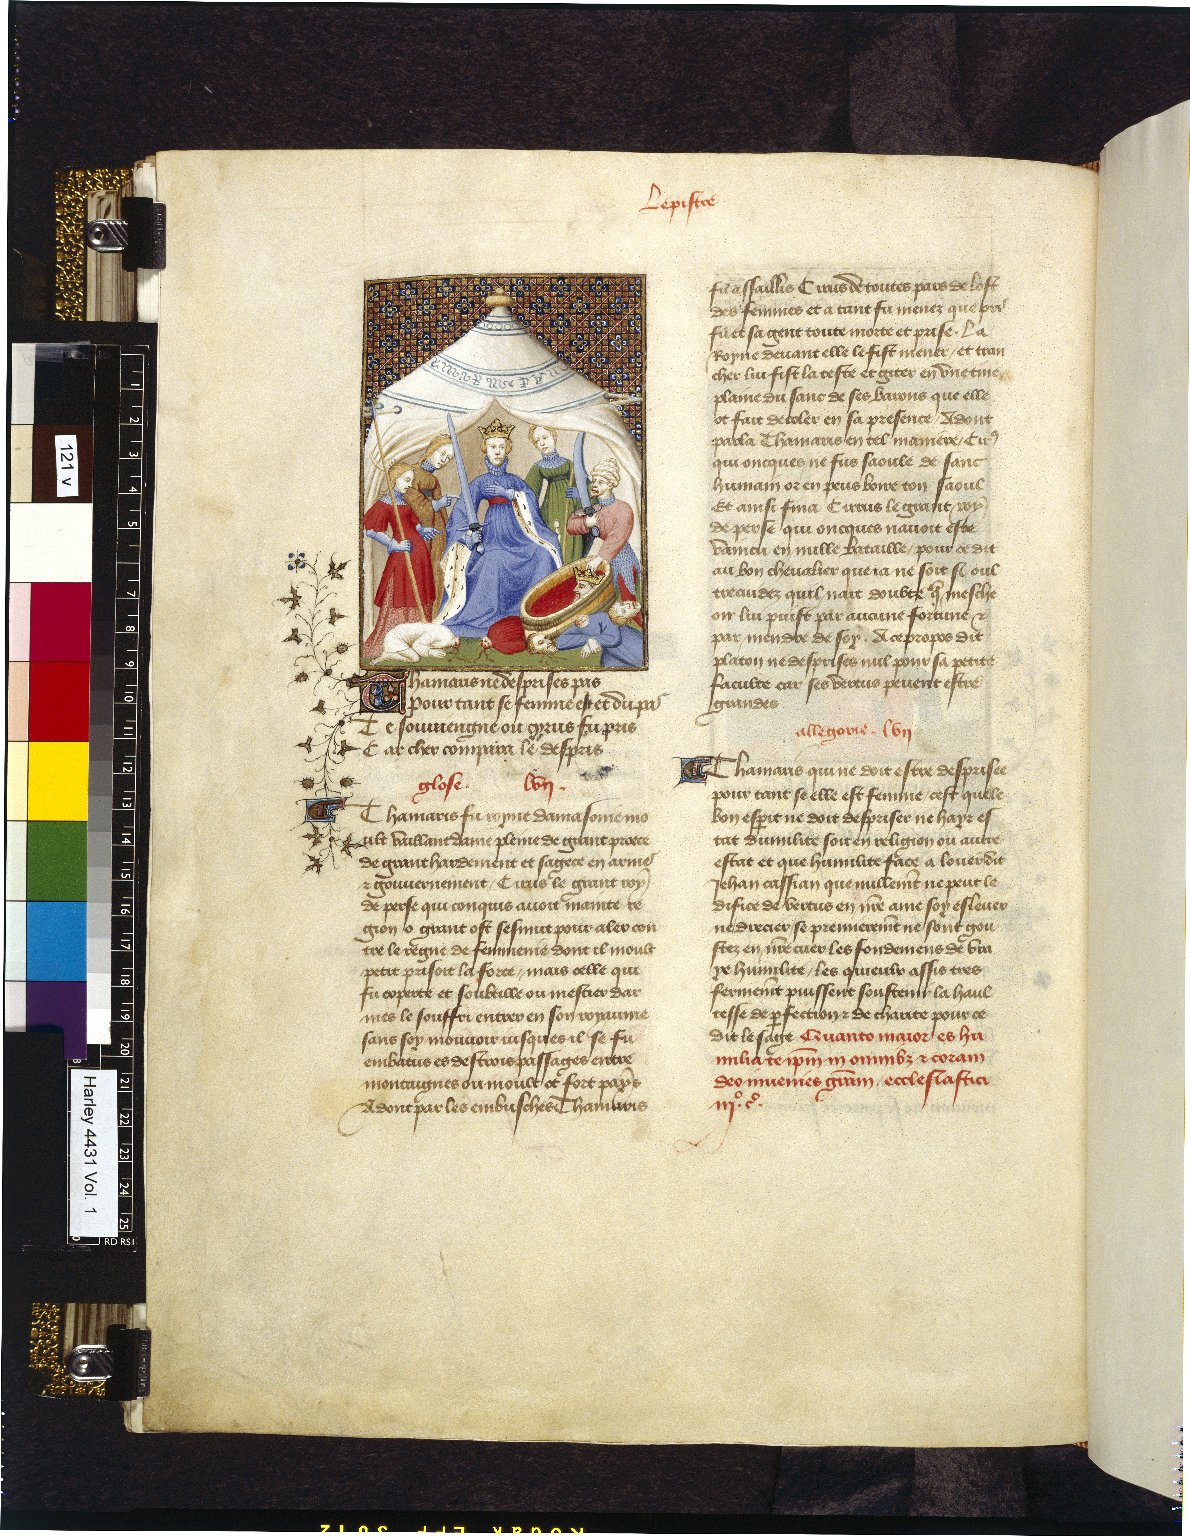 Lepistre
Thamaris ne desprises pas
Pour tant se femme est et du pas
Te souviengne ou cyrus fu pris
Car chier compara le despris
glose. lvij.
Thamaris fu royne damasonie mo
ult vaillant dame pleine de grant proece
de grant hardement et sagece en armes
⁊ gouvernement / Cirus le grant roy
de perse qui conquis avoit mainte re
gion o grant ost sesmut pour aler con
tre le regne de femmenie dont il moult
petit prisoit la force / mais celle qui
fu experte et soubtille ou mestier dar
mes le souffri entrer en son royaume
sans soy mouvoir jusques il se fu
embatus es destrois passages entre
montaignes ou moult ot fort pays
Adont par les embusches Thamaris
fu assaillis Cirus de toutes pars de lost
des femmes et a tant fu menez que pris
fu et sa gent toute morte et prise. La
Royne devant elle le fist mener / et tran
cher lui fist la teste et giter en une tine
plaine du sanc de ses barons que elle
ot fait decoler en sa presence / Adont
parla Thamaris en tel maniere / Cirus
qui oncques ne fus saoule de sanc
humain or en peus boire ton saoul
Et ainsi fina Cirus le grant roy
de perse qui oncques navoit este
vaincu en nulle bataille / pour ce dit
au bon chevalier que ja ne soit si oul
trecuidez quil nait doubte que mesche
oir lui puist par aucune fortune ⁊
par mendre de soy. A ce propos dit
platon ne desprises nul pour sa petite
faculte car ses vertus peuent estre
grandes
allegorie. lvij
Thamaris qui ne doit estre desprisee
pour tant se elle est femme / cest quele
bon esperit ne doit despriser ne hayr es
tat dumilite soit en religion ou autre
estat et que humilite face a louer dit
Jehan cassian que nullement ne peut le
difice de vertus en nostre ame soy eslever
ne drecier se premierement ne sont gou
stez en nostre cuer les fondemens de vra
ye humilite / les quieulx assis tres
ferment puissent soustenir la haul
tesse de perfection ⁊ de charite pour ce
dit le sage Quanto maior es hu
milia te ipsum in omnibus ⁊ coram
deo invenies gratiam / ecclesiastici
iijº. cº.
121 v
Harley 4431 Vol. 1
1
2
3
4
5
7
8
9
10
11
12
13
15
16
17
18
19
20
21
22
23
24
25